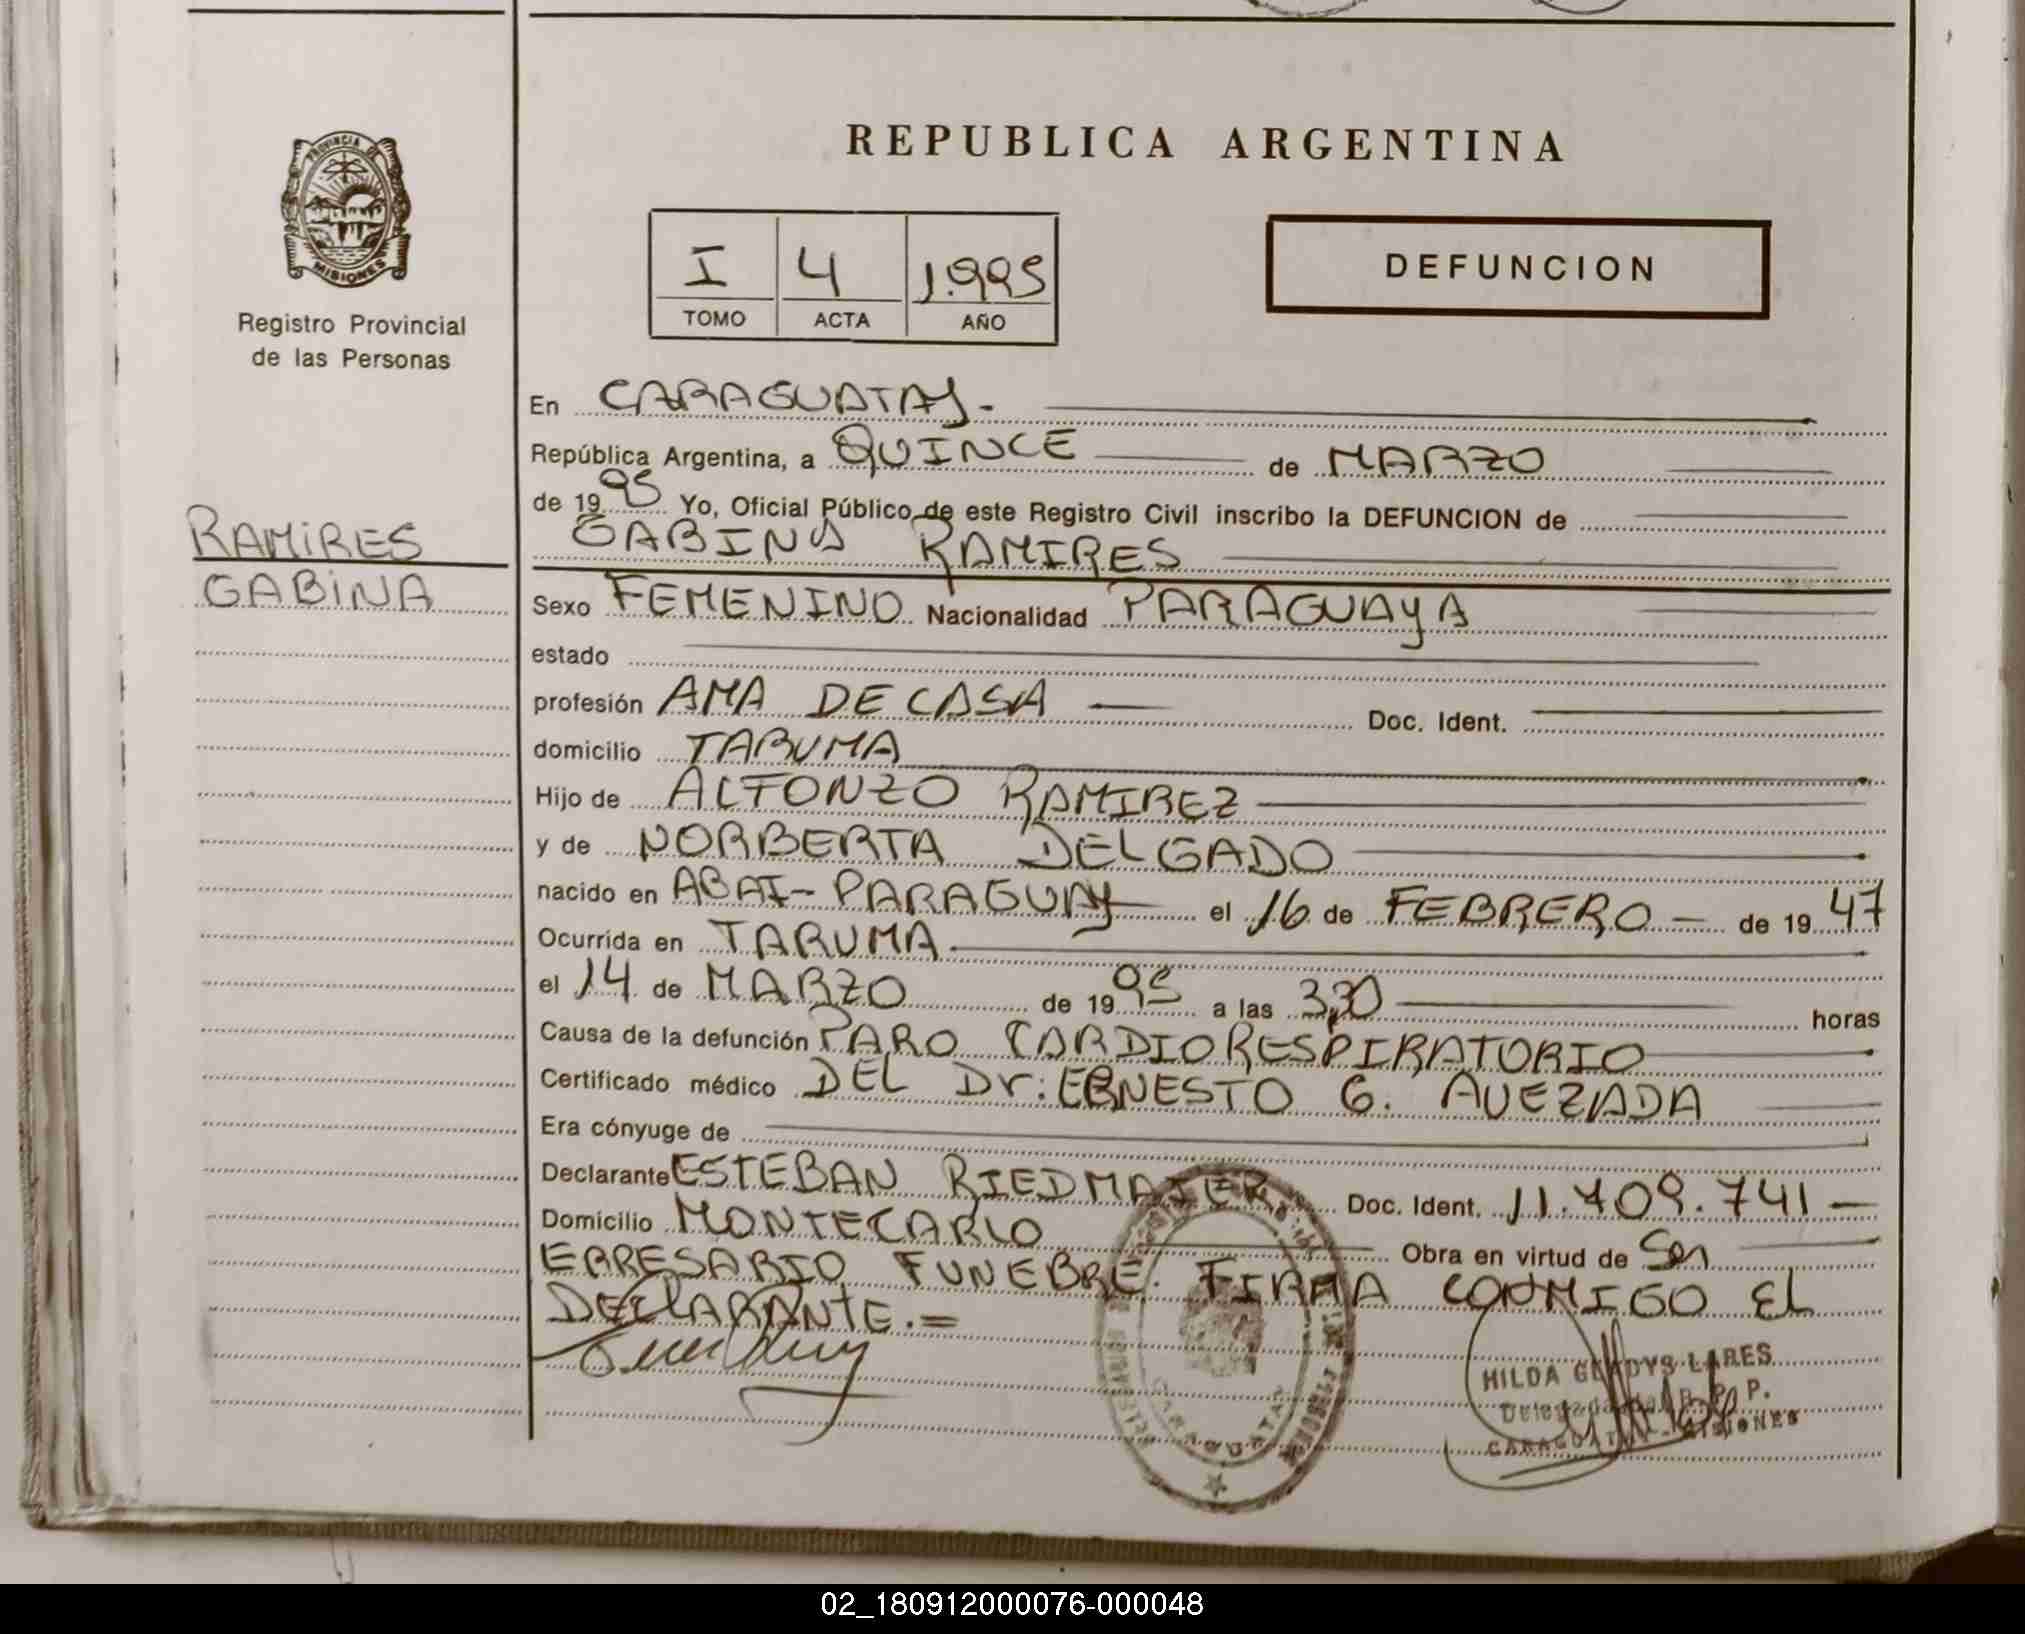 PROVINCIA DE
MISIONES
Registro Provincial
de las Personas
RAMIRES
GABINA
REPUBLICA ARGENTINA
I 4 1.995
TOMO ACTA AÑO
DEFUNCION
En CARAGUATAY.-
República Argentina, a QUINCE de MARZO
de 1995 Yo, Oficial Público de este Registro Civil inscribo la DEFUNCION de
GABINA RAMIRES
Sexo FEMENINO Nacionalidad PARAGUAYA
estado
profesión AMA DE CASA Doc. Ident.
domicilio TARUMA
Hijo de ALFONZO RAMIREZ
y de NORBERTA DELGADO
nacido en ABAI-PARAGUAY el 16 de FEBRERO - de 1947
Ocurrida en TARUMA
el 14 de MARZO de 1995 a las 3,30 horas
Causa de la defunción PARO CARDIORESPIRATORIO
Certificado médico DEL Dr: ERNESTO G. AVEZADA
Era cónyuge de
Declarante ESTEBAN RIEDMAIER Doc. Ident. 11.709.741 -
Domicilio MONTECARLO Obra en virtud de Ser
EMPRESARIO FUNEBRE. FIRMA CONMIGO EL
DECLARANTE.=
HILDA GLADYS LARES
Delegada del R. P. P.
CARAGUATAY - MISIONES
02_180912000076-000048